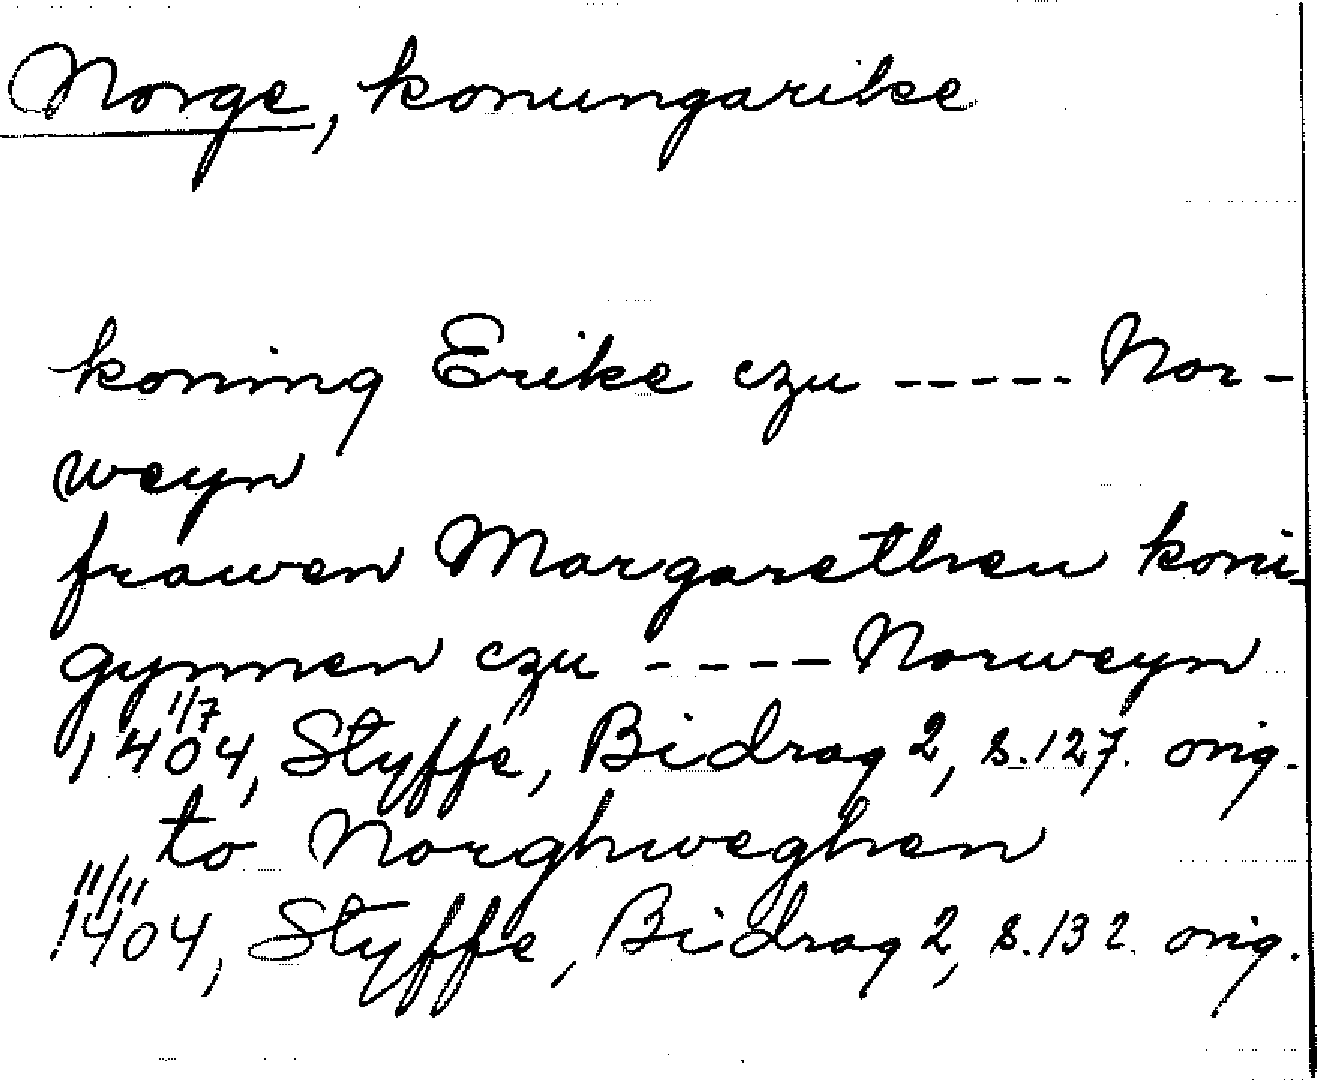 Norge, konungarike
koning Erike czu ----- Nor-
weyn
frawen Margarethen koni-
gynnen czu ---- Norweyn
1/7
1404, Styffe, Bidrag 2, s. 127. orig.
to Norghweghen
11/11
1404, Styffe, Bidrag 2, s. 132. orig.